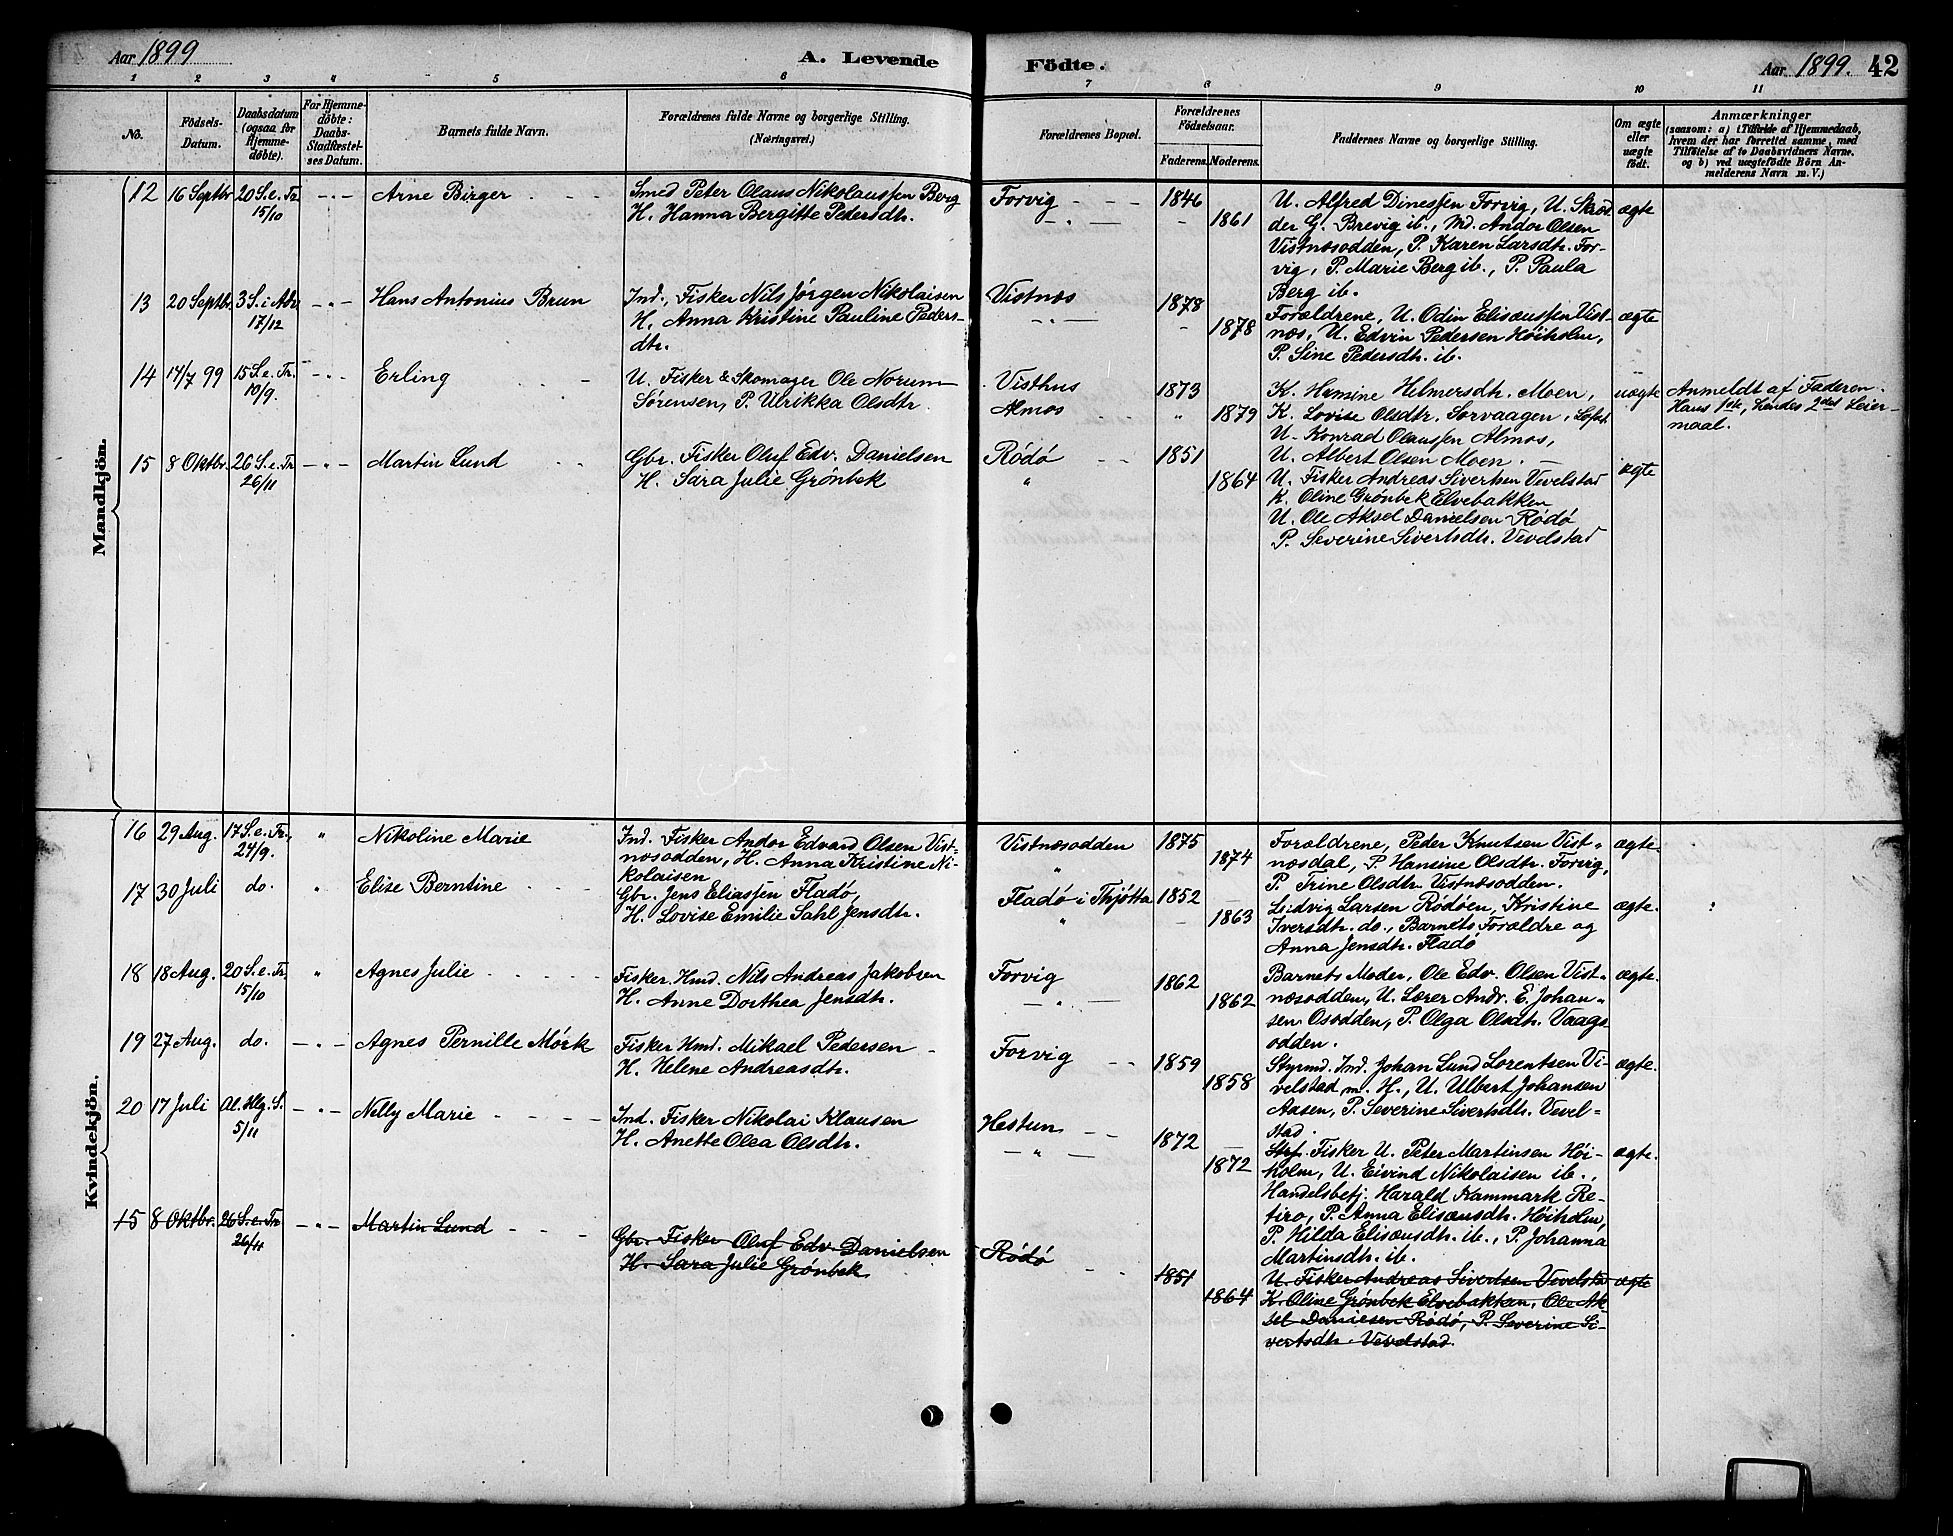 Aar 1899
A. Levende
Födte.
Aar 1899. 42
1 2 3 4 5 6 7 8 9 10 11
No.
Fødsels-
Datum.
Daabsdatum
(ogsaa for
Hjemme-
døbte).
For Hjemme-
døbte:
Daabs-
Stadfæstel-
ses Datum.
Barnets fulde Navn.
Forældrenes fulde Navne og borgerlige Stilling.
(Næringsvei.)
Forældrenes Bopæl.
Forældrenes
Fødselsaar.
Faderens. Moderens.
Faddernes Navne og borgerlige Stilling.
Om ægte
eller
uægte
født.
Anmærkninger
(saasom: a) i Tilfælde af Hjemmedaab,
hvem der har forrettet samme, med
Tilføielse af to Daabsvidners Navne,
og b) ved uægtefødte Børn An-
melderens Navn m. V.)
Mandkjön.
12 16 Septbr 20 S.e. Tr.
15/10
Arne Birger
Smed Peter Olaus Nikolaussen Berg
H. Hanna Bergitte Pedersdtr.
Forvig
1846
1861
U. Alfred Dinessen Forvig, U. Skrød-
der G. Brevig ib., Md. Andor Olsen
Vistnæsodden, P. Karen Larsdtr. For-
vig, P. Marie Berg ib., P. Paula
Berg ib.
ægte
13 20 Septbr. 3 S. i Adv.
17/12
Hans Antonius Brun
Ind., Fisker Nils Jörgen Nikolaisen
H. Anna Kristine Pauline Peders-
dtr.
Vistnæs
1878
1878
Forældrene, U. Odin Elisæussen Vist-
næs, U. Edvin Pedersen Höiholm,
P. Sine Pedersdtr. ib.
ægte
14 14/7 99 15 S.e. Tr.
10/9.
Erling
U. Fisker & Skomager Ole Norum
Sørensen, P. Ulrikka Olsdtr.
Visthus
Almos
1873
" 1879
K. Hansine Helmersdtr. Moen,
K. Lovise Olsdtr. Sorvaagen, Lofot.
U. Konrad Olaussen Almos,
U. Albert Olsen Moen.
uægte
Anmeldt af Faderen.
Hans 1ste, hendes 2det Leier-
maal.
15 8 Oktbr. 26 S.e. Tr
26/11
Martin Lund
Gbr. Fisker Oluf Edv. Danielsen
H. Sara Julie Grönbek
Rödö
"
1851
1864
U. Fisker Andreas Sivertsen Vevelstad
K. Oline Grönbek Elvebakken
U. Ole Aksel Danielsen Rödö
P. Severine Sivertsdtr. Vevelstad
ægte
Kvindekjön.
16 29 Aug. 17 S.e. Tr.,
24/9.
"
Nikoline Marie
Ind. Fisker Andor Edvard Olsen Vist-
næsodden, H. Anna Kristine Ni-
kolaisen
Vistnæsodden
"
1875
1874
Forældrene, Peder Knutsen Vist-
næsdal, P. Hansine Olsdtr. Forvig,
P. Trine Olsdtr. Vistnæsodden.
ægte
17 30 Juli do. "
Elise Berntine
Gbr. Jens Eliassen Fladö,
H. Lovise Emilie Sahl Jensdtr.
Fladö i Thjötta
"
1852
1863
Ludvig Larsen Rödöen, Kristine
Iversdtr. do., Barnets Forældre og
Anna Jensdtr. Fladö
ægte.
18 18 Aug. 20 S.e. Tr.
15/10
"
Agnes Julie
Fisker. Hmd. Nils Andreas Jakobsen
H. Anne Dorthea Jensdtr.
Forvig
"
1862
1862
Barnets Moder, Ole Edv. Olsen Vist-
næsodden, U. Lærer Andr. E. Johan-
sen Osodden, P. Olga Olsdtr. Vaags-
odden.
ægte.
19 27 Aug. do.
Agnes Pernille Mörk
Fisker Hmd. Mikael Pedersen
H. Helene Andreasdtr.
Forvig
1859
1858
Styrmd. Ind. Johan Lund Lorentsen Vi-
velstad m. H., U. Ulbert Johansen
Aasen, P. Severine Sivertsdtr. Vevel-
stad.
ægte.
20 17 Juli Al. Hlg. S.
5/11
Nelly Marie
Ind. Fisker Nikolai Klausen
H. Anette Olea Olsdtr.
Hestun
"
1872
1872
Strf. Fisker U. Peter Martinsen Höi-
holm, U. Eivind Nikolaisen ib.,
Handelsbetj. Harald Kammark Re-
tiro, P. Anna Elisæusdtr. Höiholm,
P. Hilda Elisæusdtr. ib., P. Johanna
Martinsdtr. ib.
ægte.
15 8 Oktbr. 26 S.e. Tr
26/11
Martin Lund
Gbr. Fisker Oluf Edv. Danielsen
H. Sara Julie Grönbek
Rödö
1851
1864
U. Fisker Andreas Sivertsen Vevelstad
K. Oline Grönbek Elvebakken, Ole Ak-
sel Danielsen Rödö, P. Severine Si-
vertsdtr. Vevelstad.
ægte